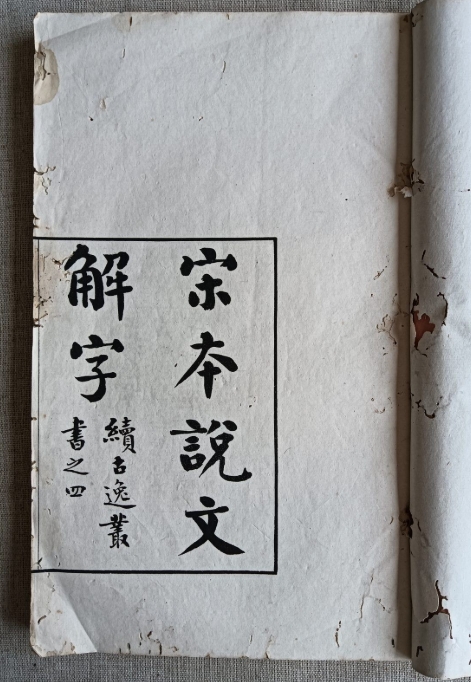 宋本說文
解字
續古逸叢
書之四